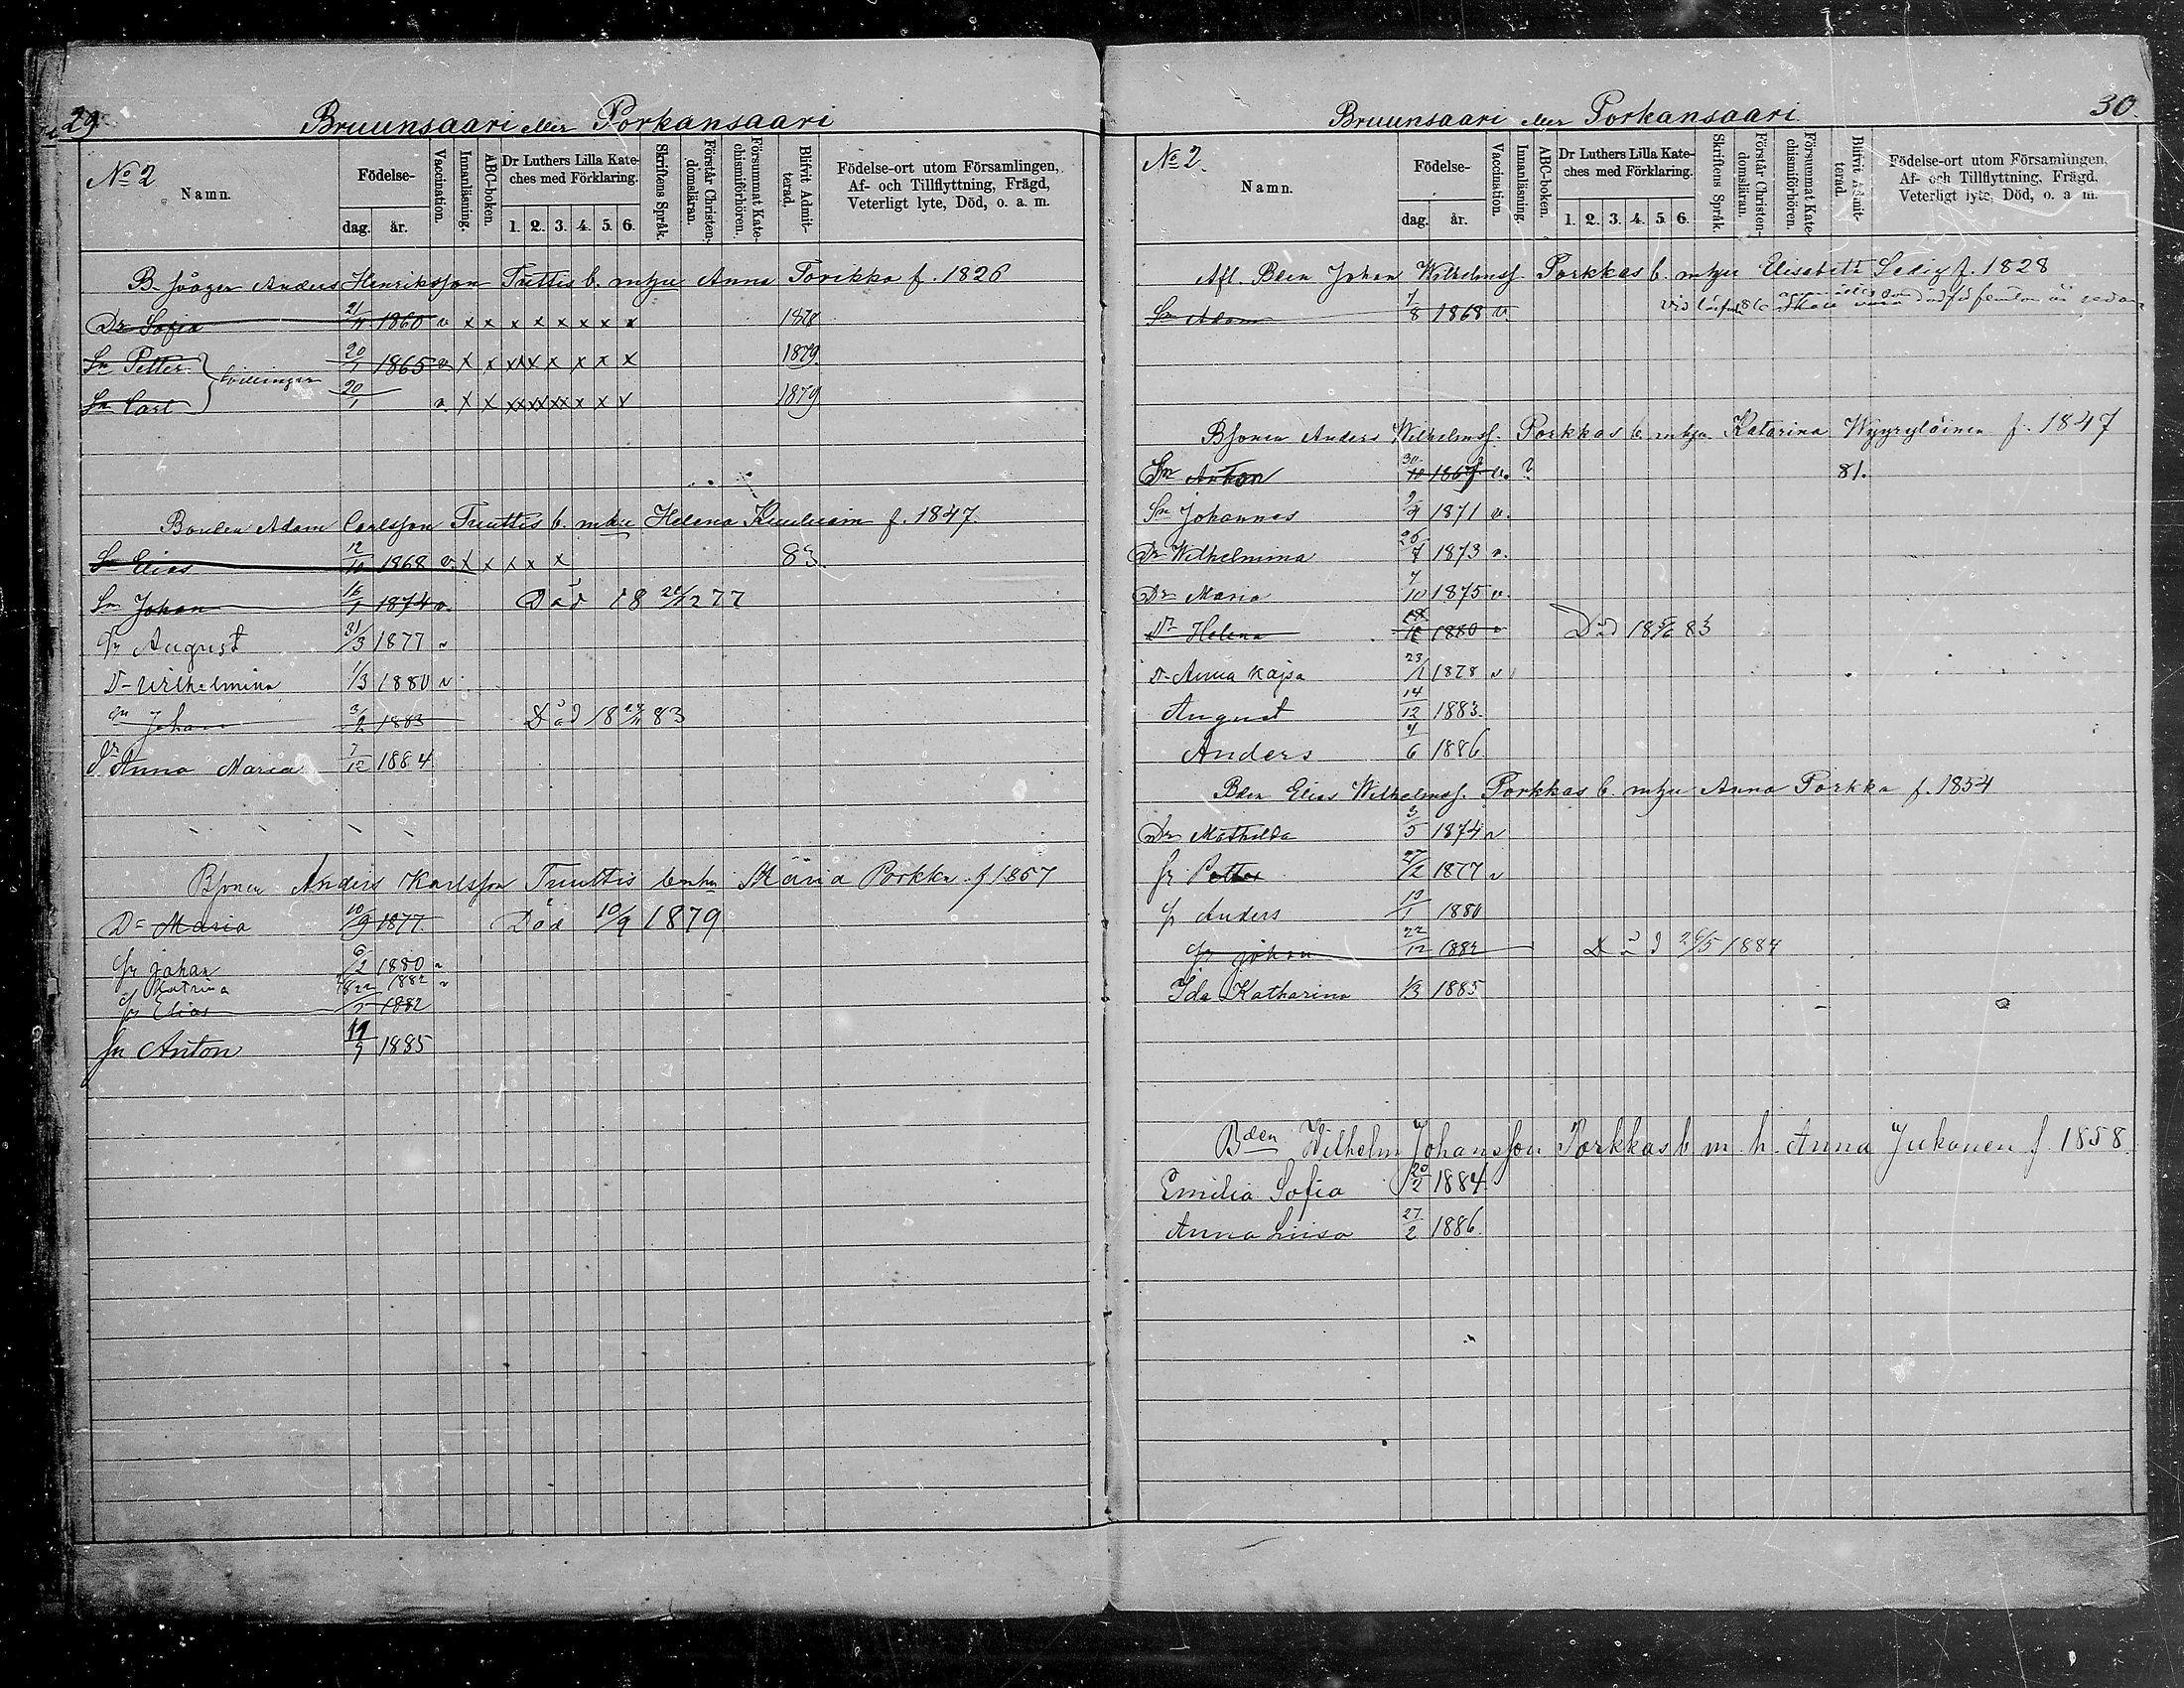 29.
Bruunsaari eller Porkansaari
No 2
Namn.
Födelse-
dag. år.
Vaccination.
Innanläsning.
ABC-boken.
Dr Luthers Lilla Kate-
ches med Förklaring.
1. 2. 3. 4. 5. 6.
Skriftens Språk.
Förstår Christen-
domsläran.
Försummat Kate-
chismiförhören.
Blifvit Admit-
terad.
Födelse-ort utom Församlingen,
Af- och Tillflyttning, Frägd,
Veterligt lyte, Död, o. a. m.
Anders Henriksson Tuttis b. mhu Anna Torikka f. 1826
Dr Sofia 21/11 1860 v x x x x x x x x 1878
Sn Petter 20/1 1865 v x x x x x x x x 1879.
tvillingar
Sn Carl 20/1 v. x x x x x x x x 1879
Bonden Adam Carlsson Tuuttis b. mhu Helena f. 1847.
Sn Elias 12/10 1868 v. x x x x x 83.
Sn Johan 16/1 1874 v. Död 18 77
Sn August 31/3 1877 v
Dr Wilhelmina 1/3 1880 v
Sn Johan 3/2 1883 Död 18 83
Dr Anna Maria 7/12 1884
Bsonen Anders Karlsson Tuuttis Maria Porkka f 1857
Dr Maria 10/9 1877. Död 10/9 1879
Sn Johan 6/2 1880 v
Katrina 1882 v
Sn Elias 1882
Sn Anton 19/9 1885
Bruunsaari eller Porkansaari.
30.
No 2.
Namn.
Födelse-
dag. år.
Vaccination.
Innanläsning.
ABC-boken.
Dr Luthers Lilla Kate-
ches med Förklaring.
1. 2. 3. 4. 5. 6.
Skriftens Språk.
Förstår Christen-
domsläran.
Försummat Kate-
chismiförhören.
Blifvit Admit-
terad.
Födelse-ort utom Församlingen,
Af- och Tillflyttning, Frägd,
Veterligt lyte, Död, o. a m.
Afl. Bden Johan Wilhelmss. Porkkas b. mhu Elisabeth f. 1828
Sn Adam 7/8 1868 v. Skall vara död för femton år sedan
Bsonen Anders Wilhelmss. Porkkas b. mhu Katarina Wyyryläinen f. 1847
Sn Anton 30/10 1867 v. ? 81.
Sn Johannes 9/9 1871 v.
Dr Wilhelmina 26/7 1873 v.
Dr Maria 7/10 1875 v
Dr Helena 1880 v Död 18 83
Dr Anna Kajsa 23/1 1878 v
August 14/12 1883.
Anders 4/6 1886.
Bden Elias Wilhelmss. Porkkas b. mhu Anna Porkka f. 1854
Dr Mathilda 3/5 1874 v
Sn Petter 27/2 1877 v
Sn Anders 13/1 1880
Sn Johan 22/12 1882 Död 26/5 1884
Ida Katharina 1/3 1885
Bden Wilhelm Johansson Porkkas b m. h. Anna Jukonen f. 1858.
Emilia Sofia 20/2 1884.
Anna Luisa 27/2 1886.